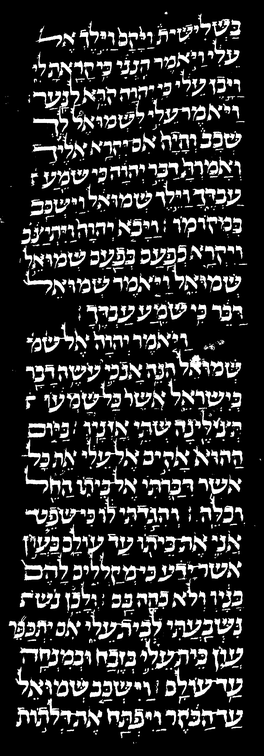 בשלישית ויקם וילך אל
עלי ויאמר הנני כי קראת לי
ויבן עלי כי יהוה קרא לנער
ויאמר עלי לשמואל לך
שכב והיה אם יקרא אליך
ואמרת דבר יהוה כי שמע
עבדך וילך שמואל וישכב
במקומו : ויבא יהוה ויתיצב
ויקרא כפעם בפעם שמואל
שמואל ויאמר שמואל
דבר כי שמע עבדך :
ויאמר יהוה אל שמ
שמואל הנה אנכי עשה דבר
בישראל אשר כל שמעו ת
תצלינה שתי אזניו : ביום
ההוא אקים אל עלי את כל
אשר דברתי אל ביתו החל
וכלה : והגדתי לו כי שפט
אני את ביתו עד עולם בעון
אשר ידע כי מקללים להם
בניו ולא כהה בם : ולכן
נשבעתי לבית עלי אם יתכפר
עון בית עלי בזבח ובמנחה
עד עולם : וישכב שמואל
עד הבקר ויפתח את דלתות